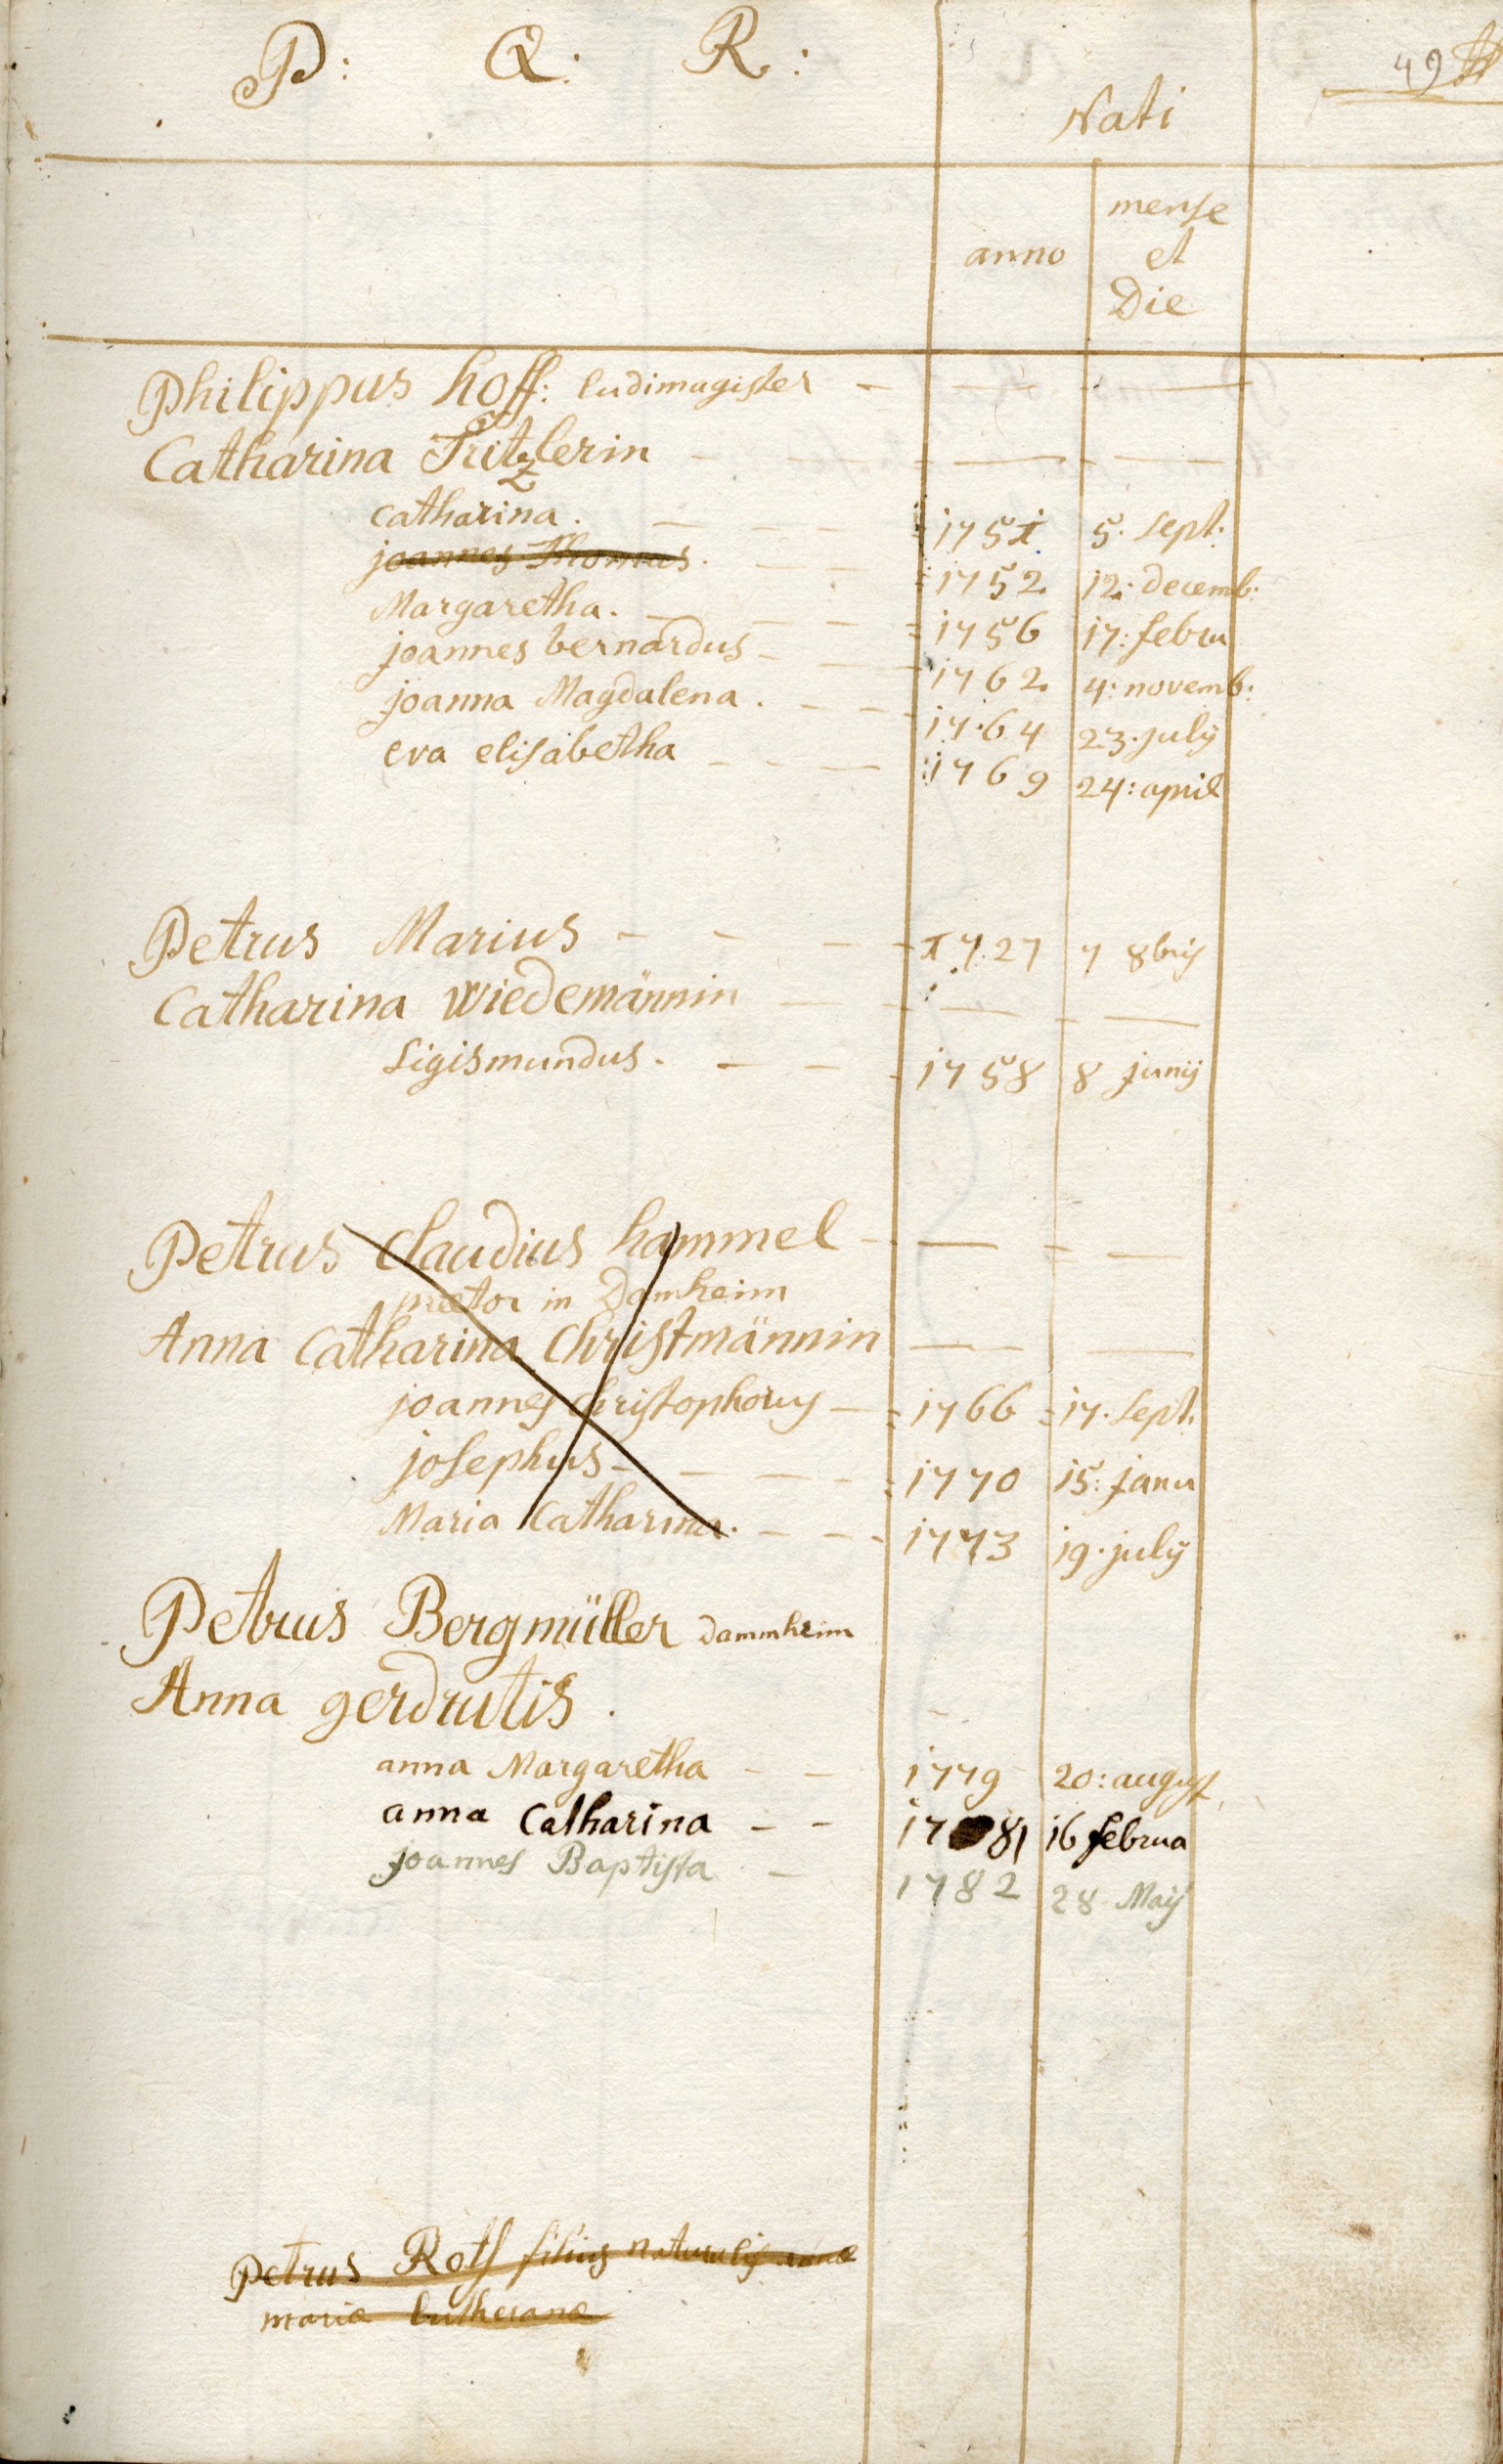 P: Q: R:
49
Nati
anno
mense
et
Die
Philippus hoff: ludimagister
Catharina Tritzlerin
catharina. 1751 5. sept.
joannes Thomas. 1752 12. decemb:
Margaretha. 1756 17: febru
joannes bernardus 1762 4: novemb:
joanna Magdalena. 1764 23. july
eva elisabetha 1769 24: april
Petrus Marius 1727 7 8bris
Catharina Wiedemännin
Sigismundus. 1758 8 junij
Petrus Claudius hammel
praetor in Damheim
Anna Catharina Christmännin
joannes christophorus 1766 17. sept.
josephus 1770 15: janu
Maria Catharina. 1773 19. july
Petrus Bergmüller Dammheim
Anna gerdrutis.
anna Margaretha 1779 20: august
anna Catharina 1781 16 februa
joannes Baptista 1782 28 Maij
Petrus Roth filius naturalis
mariae lutheranae